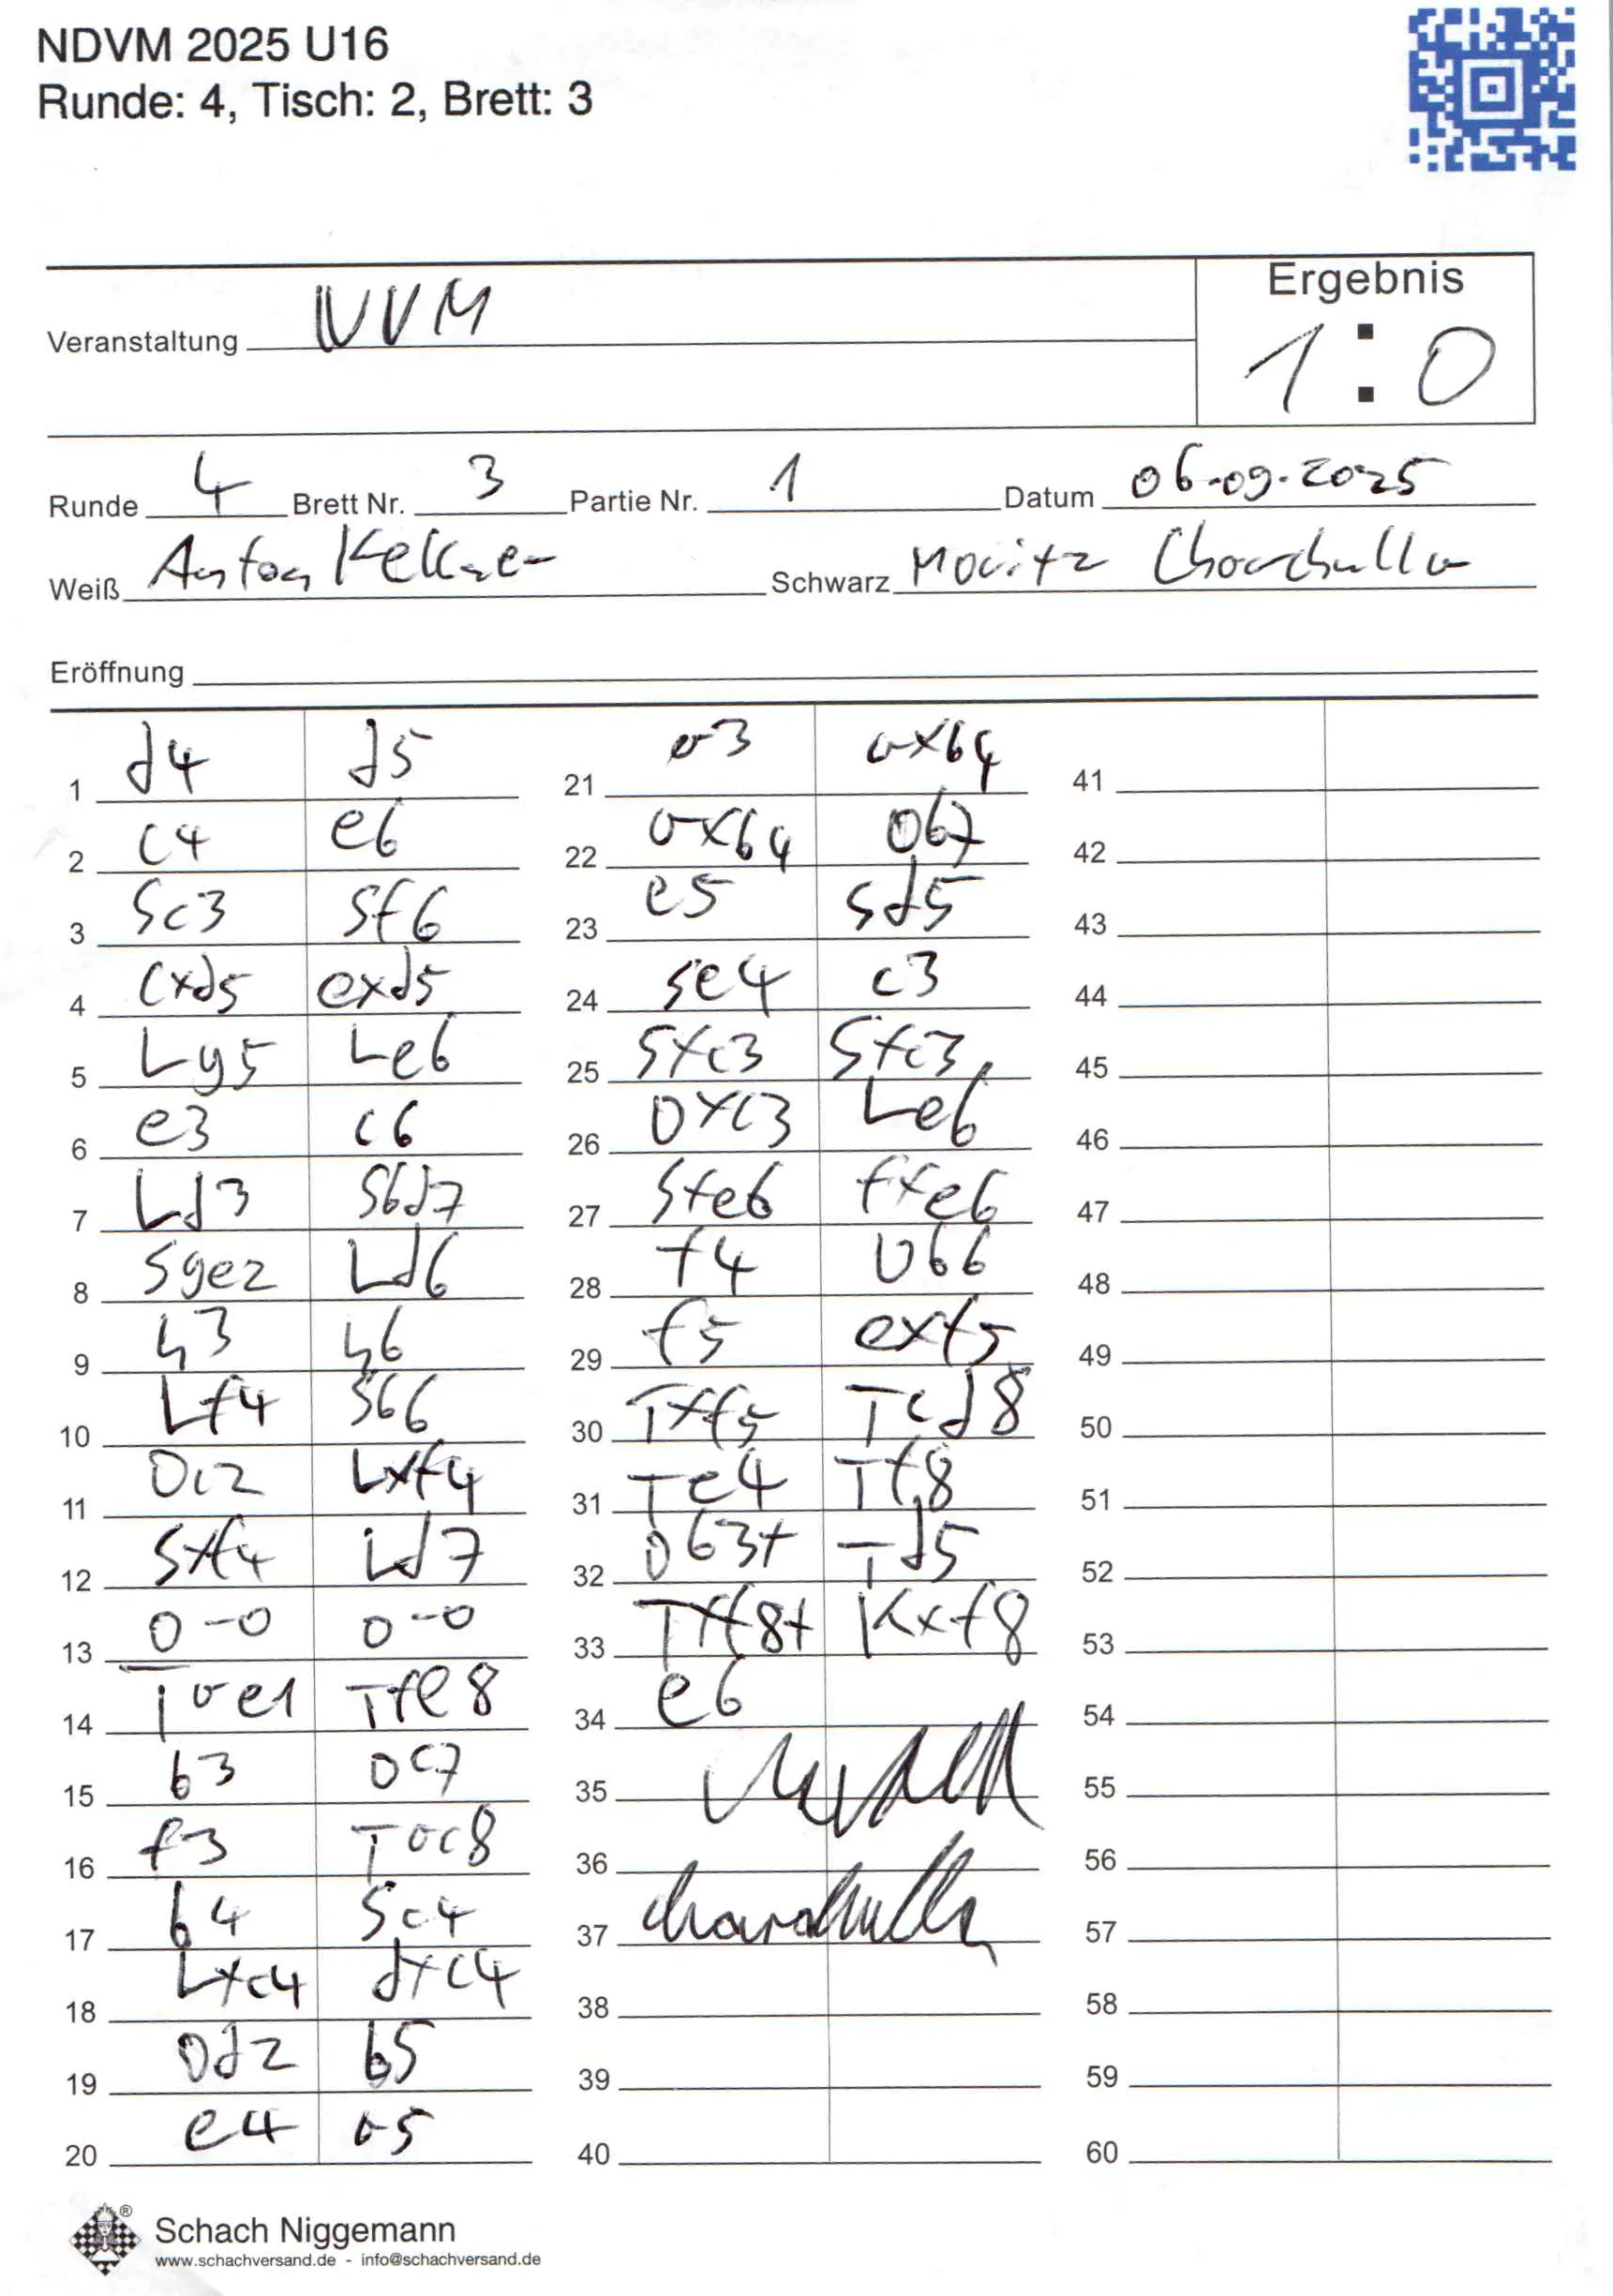 NDVM 2025 U16
Runde: 4, Tisch: 2, Brett: 3
Ergebnis
Veranstaltung NVM
1 : 0
Runde 4 Brett Nr. 3 Partie Nr. 1 Datum 06.09.2025
Weiß Anton Kellner Schwarz Moritz
Eröffnung
1 d4 d5
2 c4 e6
3 Sc3 Sf6
4 cxd5 exd5
5 Lg5 Le6
6 e3 c6
7 Ld3 Sbd7
8 Sge2 Ld6
9 h3 h6
10 Lf4 Sb6
11 Dc2 Lxf4
12 Sxf4 Ld7
13 0-0 0-0
14 Tae1 Tfe8
15 b3 Dc7
16 f3 Tac8
17 b4 Sc4
18 Lxc4 dxc4
19 Dd2 b5
20 e4 a5
21 a3 axb4
22 axb4 Db7
23 e5 Sd5
24 Se4 c3
25 Sxc3 Sxc3
26 Dxc3 Le6
27 Sxe6 fxe6
28 f4 Db6
29 f5 exf5
30 Txf5 Tcd8
31 Te4 Tf8
32 Db3+ Td5
33 Txf8+ Kxf8
34 e6
35
36
37
38
39
40
41
42
43
44
45
46
47
48
49
50
51
52
53
54
55
56
57
58
59
60
Schach Niggemann
www.schachversand.de - info@schachversand.de